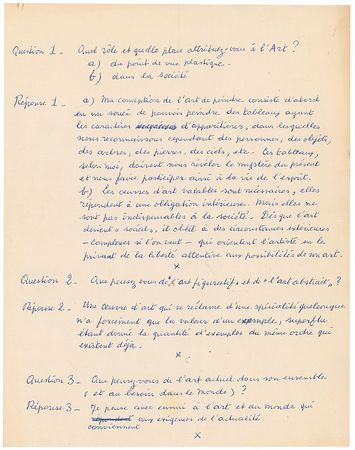 Question 1 - Quel rôle et quelle place attribuez-vous à l'Art ?
a) du point de vue plastique -
b) dans la société
Réponse 1 - a) Ma conception de l'art de peindre consiste d'abord
en un souci de pouvoir peindre des tableaux ayant
les caractères d'apparitions, dans lesquelles
nous reconnaissons cependant des personnes, des objets,
des arbres, des pierres, des ciels, etc - Ces tableaux,
selon moi, doivent nous révéler le mystère du présent
et nous faire participer ainsi à la vie de l'esprit.
b) Les œuvres d'art valables sont nécessaires, elles
répondent à une obligation intérieure. Mais elles ne
sont pas indispensables à la société. Dès que l'art
devient "sociétés", il obéit à des circonstances extérieures
- complexes si l'on veut - qui orientent l'artiste en le
privant de la liberté attentive aux possibilités de son art.
x
Question 2 - Que pensez-vous de "l'art figuratif" et de "l'art abstrait" ?
Réponse 2 - Une œuvre d'art qui se réclame d'une spécialité quelconque
n'a forcément que la valeur d'un exemple, superflu
étant donné la quantité d'exemples du même ordre qui
existent déjà.
x
Question 3 - Que pensez-vous de l'art actuel dans son ensemble
(et au besoin dans le monde) ?
Réponse 3 - Je pense avec ennui à l'art et au monde qui
aux exigences de l'actualité
conviennent
x